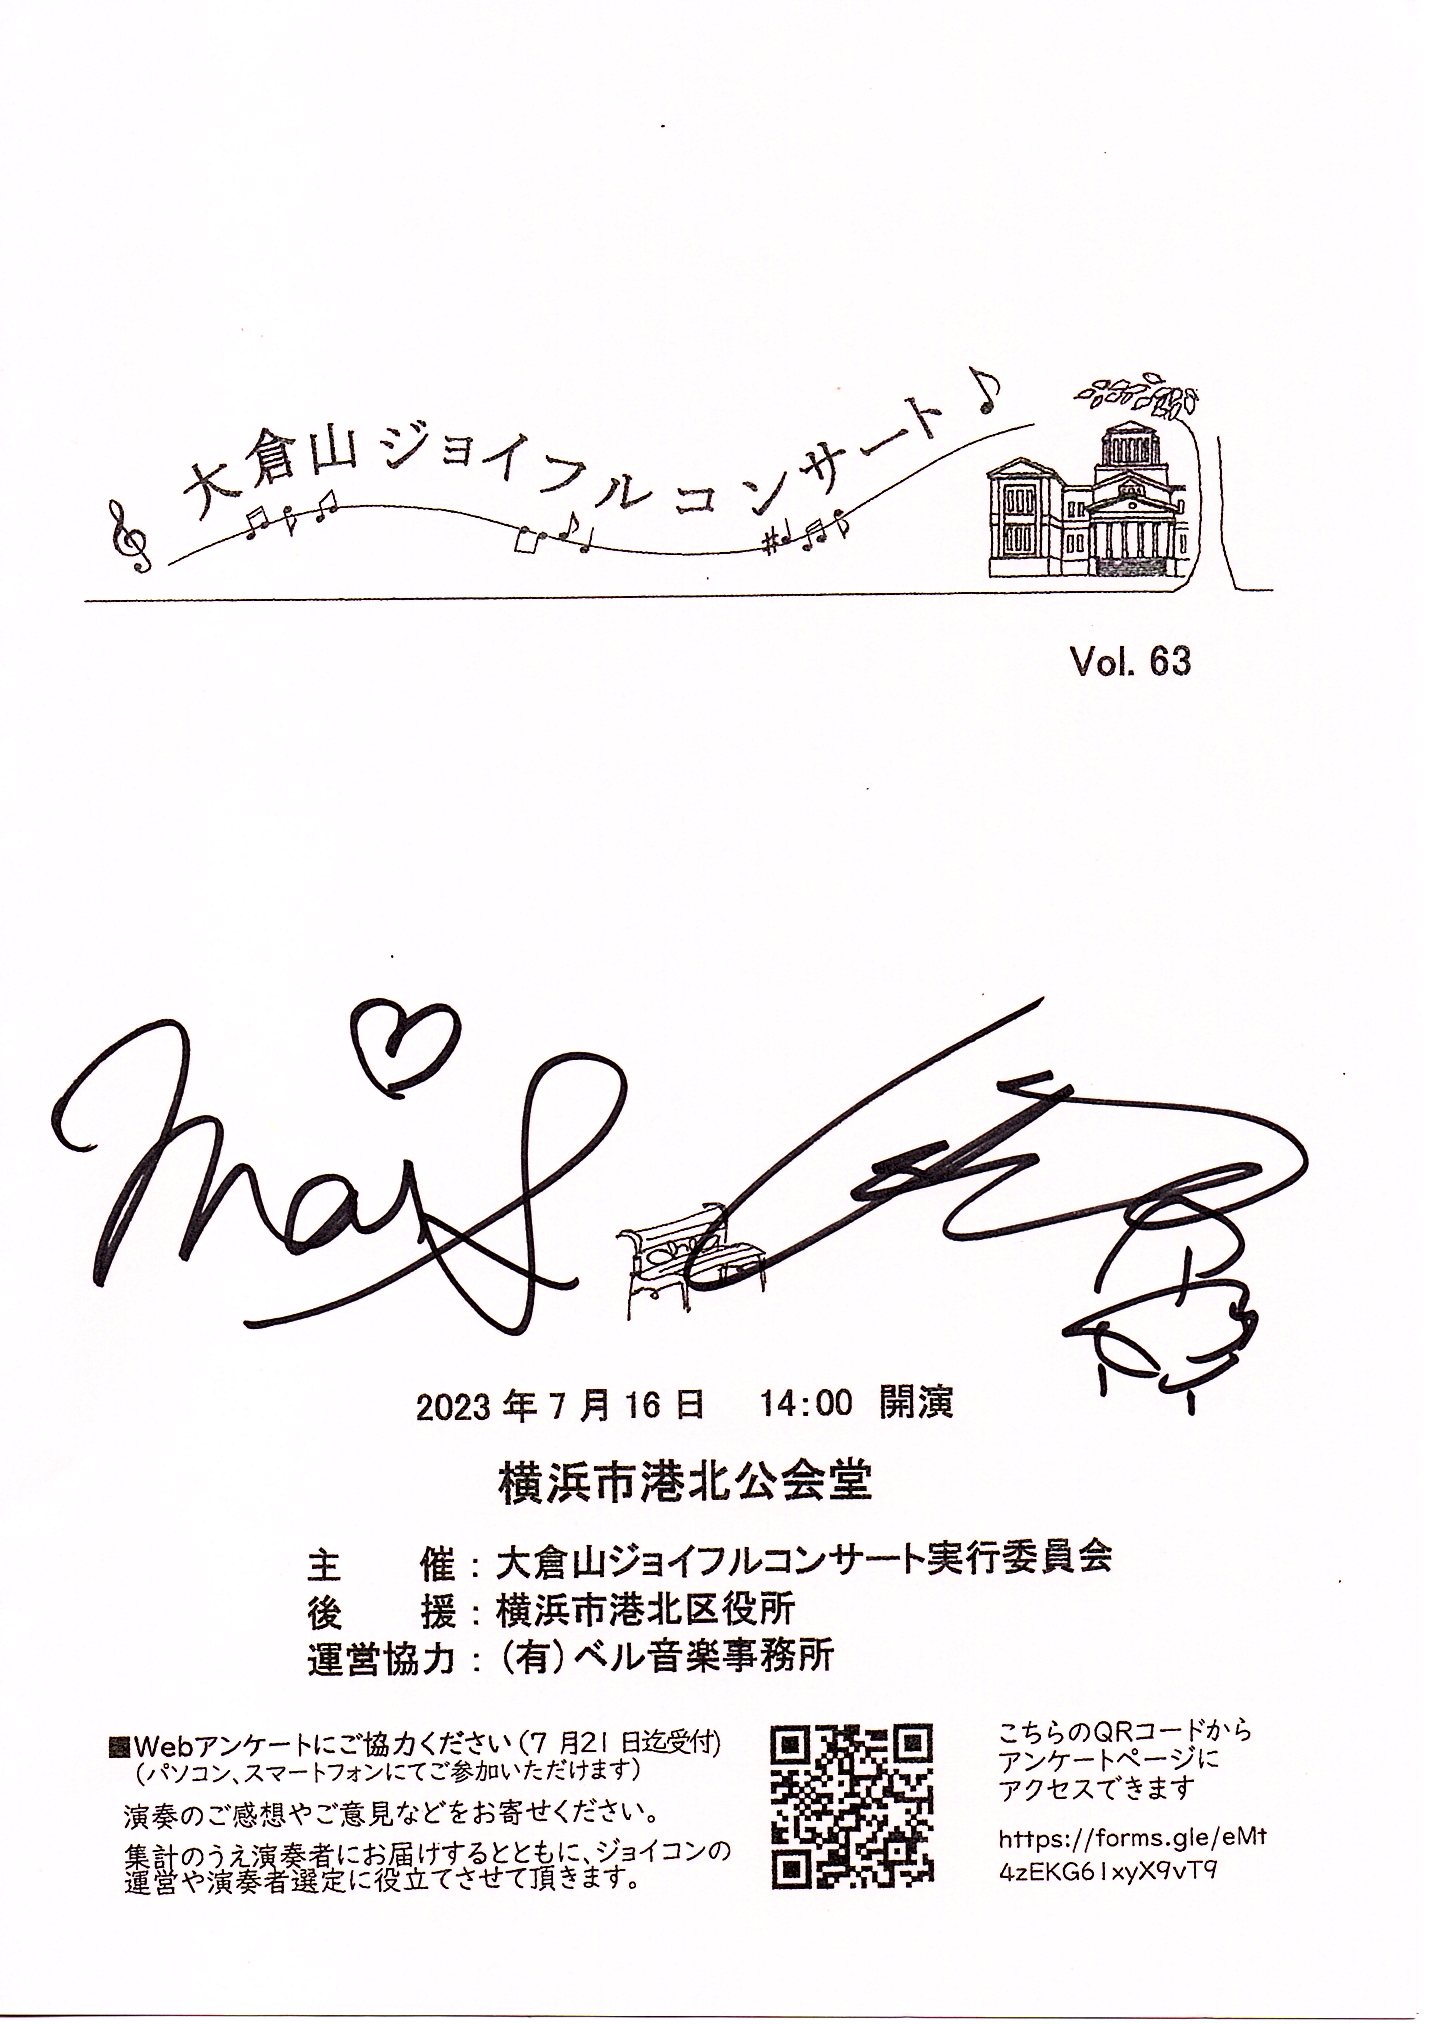 大倉山ジョイフルコンサート♪
Vol. 63
2023年7月16日 14:00 開演
横浜市港北公会堂
主 催：大倉山ジョイフルコンサート実行委員会
後 援：横浜市港北区役所
運営協力：(有)ベル音楽事務所
■Webアンケートにご協力ください(7月21日迄受付)
(パソコン、スマートフォンにてご参加いただけます)
演奏のご感想やご意見などをお寄せください。
集計のうえ演奏者にお届けするとともに、ジョイコンの
運営や演奏者選定に役立てさせて頂きます。
こちらのQRコードから
アンケートページに
アクセスできます
https://forms.gle/eMt
4zEKG61xyX9vT9